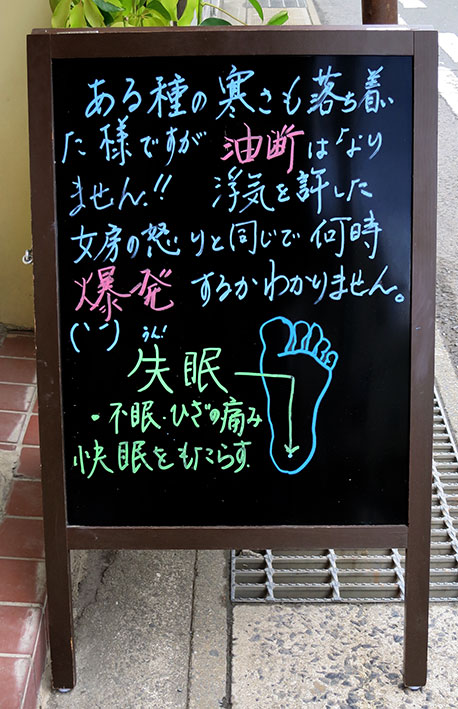 ある種の寒さも落ち着い
た様ですが油断はなり
ません!! 浮気を許した
女房の怒りと同じで何時
爆発するかわかりません。
うん!
失眠
・不眠・ひざの痛み
快眠をもたらす